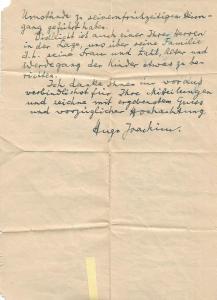 Umstände zu seinem frühzeitigen Heim-
gang geführt haben.
Vielleicht ist auch einer Ihrer Herren
in der Lage, uns über seine Familie
d.h. seine Frau und Zahl, Alter und
Werdegang der Kinder etwas zu be-
richten.
Ich danke Ihnen im voraus
verbindlichst für Ihre Mitteilungen
und zeichne mit ergebenstem Gruss
und vorzüglicher Hochachtung
Hugo Joachim.